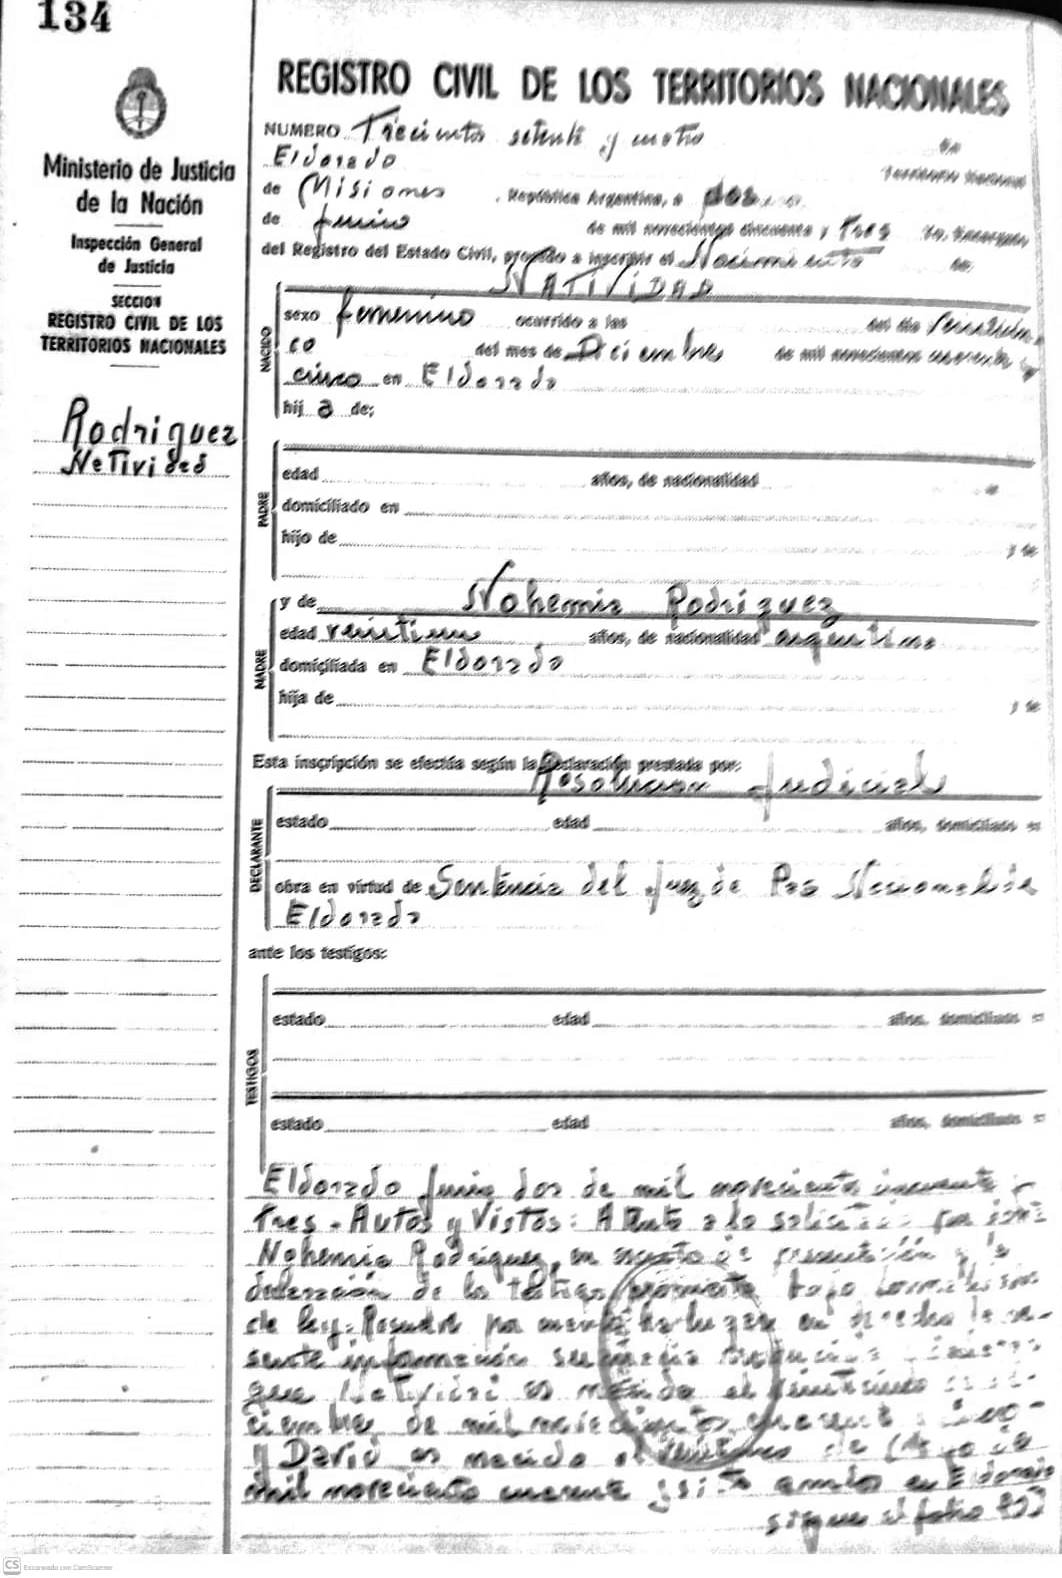 134
Ministerio de Justicia
de la Nación
Inspección General
de Justicia
SECCION
REGISTRO CIVIL DE LOS
TERRITORIOS NACIONALES
Rodriguez
Natividad
REGISTRO CIVIL DE LOS TERRITORIOS NACIONALES
NUMERO Trecientos setenta y cuatro
Eldorado
de Misiones , República Argentina, a dos
de Junio de mil novecientos cincuenta y Tres
del Registro del Estado Civil, procedo a inscribir el Nacimiento
NATIVIDAD
NACIDO
sexo femenino ocurrido a las del día Veinticin
co del mes de Diciembre de mil novecientos cuarenta y
cinco en Eldorado
hij a de;
PADRE
edad años, de nacionalidad
domiciliado en
hijo de y de
MADRE
y de Nohemia Rodriguez
edad años, de nacionalidad argentina
domiciliada en Eldorado
hija de y de
Esta inscripción se efectúa según la declaración prestada por:
DECLARANTE
Resolucion Judicial
estado edad años, domiciliado en
obra en virtud de Sentencia del Juez de Paz Nacional de
Eldorado
ante los testigos:
TESTIGOS
estado edad años, domiciliado en
estado edad años, domiciliado en
Eldorado Junio dos de mil novecientos cincuenta y
Tres - Autos y Vistos: Atento a lo solicitado por
Nohemia Rodriguez, en de presentación y la
declaración de los testigos bajo
de ley: por cuanto ha lugar en derecho la
sente información
que Natividad es nacida el veinticinco de
ciembre de mil novecientos cuarenta y cinco
y David es nacido el de Mayo de
mil novecientos cuarenta y siete ambos en Eldorado
sigue al folio
CS Escaneado con CamScanner